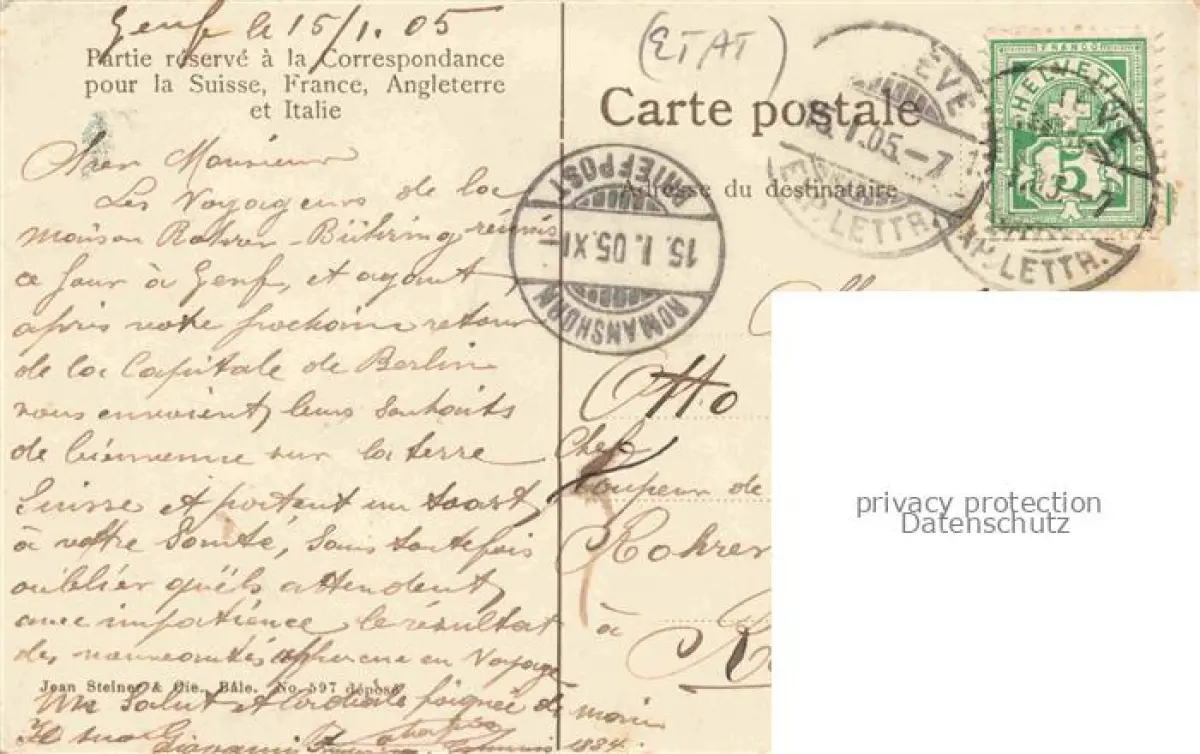 Genf le 15/1. 05
Partie réservé à la Correspondance
pour la Suisse, France, Angleterre
et Italie
Cher Monsieur
Les Voyageurs de la
maison Rohrer-Bühring réunis
ce jour à Genf, et ayant
après votre prochain retour
de la Capitale de Berlin
vous envoient leurs souhaits
de bienvenue sur la terre
Suisse et portent un toast
à votre Santé, sans toutefois
oublier qu'ils attendent
avec impatience le résultat
des nouveautés en Voyage
Jean Steiner & Cie., Bâle. No 597 déposé
Un Salut et Cordiale poignée de main
Giovanni
1884.
(ETAT)
Carte postale
Adresse du destinataire
BRIEFPOST
15.I.05.XI
ROMANSHORN
15.I.05.-7
EXP. LETTR.
EXP. LETTR.
FRANCO
HELVETIA
5
Otto
Chef
Coupeur de
Rohrer
à
privacy protection
Datenschutz